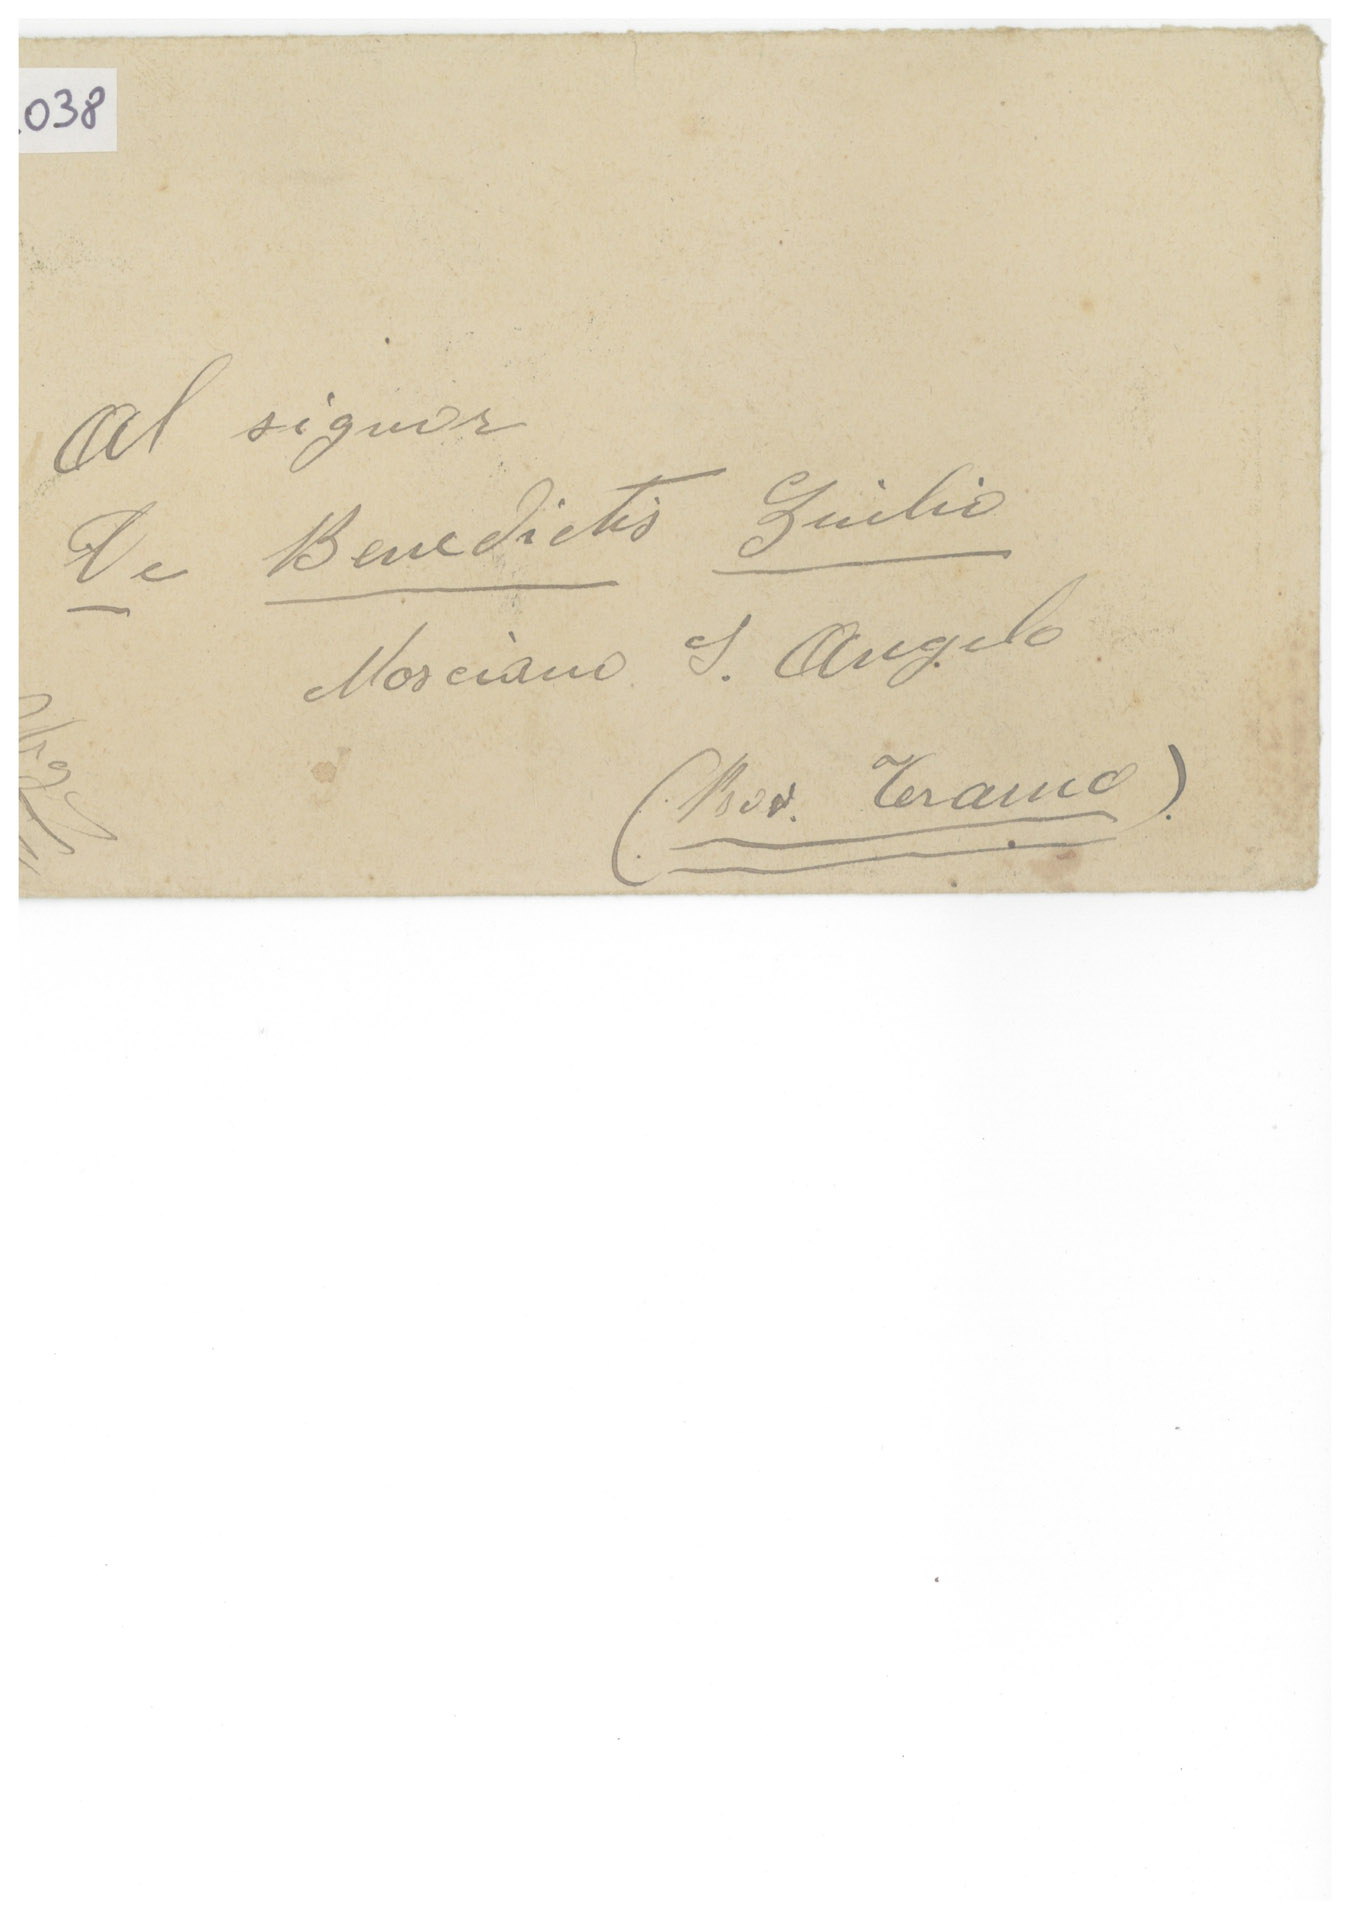 .038
Al signor
De Benedictis Giulio
Mosciano S. Angelo
(Prov. Teramo).